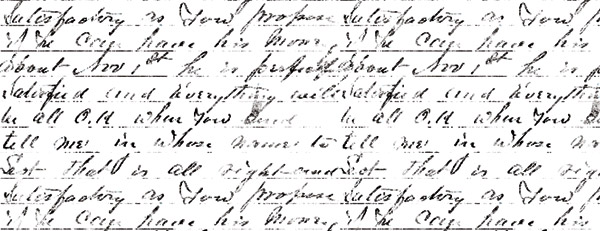 Satisfactory as You propose Satisfactory as You
if he can have his Money if he can have his
about Nov 1st he is perfectly about Nov 1st he is
satisfied and Everything will satisfied and Everything
be all O.K when You Send be all O.K when You
tell me in whose name to tell me in whose
that is all right and that is all
Satisfactory as You propose Satisfactory as You
if he can have his Money if he can have his